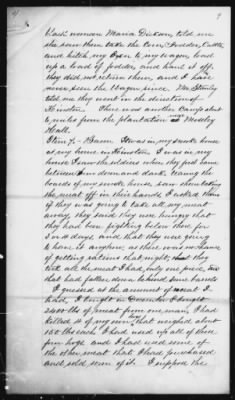 Cash woman Maria Dickson, told me
she saw them take the corn, Fodder, Cattle
and hitch my Oxen to my wagon, load
up a load of fodder, and haul it off,
they did not return them, and I have
never seen the Wagon since. Mr. Stanley
told me they went in the direction of
Kinston. There was another Camp about
2 miles from the plantation near Moseley
Hall.
Item 7. - Bacon It was in my smoke house
at my home in Kinston I was in my
house I saw the soldiers when they first came
between sun down and dark tearing the
boards of my smoke house, saw them taking
the meat off in their hands, I asked them
if they was going to take all my meat
away, they said they were hungry that
they had been fighting below there for
3 or 4 days, and that they were going
to have it anyhow, as there was no chance
of getting rations that night, they
took all the meat I had, only one piece,
that had fallen down behind some barrels
I guessed at the amount of meat I
had, I bought in December I bought
2400 lbs of meat from one man, I had
killed 4 of my own, that weighed about
150 lbs each I had used up all of these
four hogs and I had used some of
the other meat that I had purchased
and sold some of it. I suppose the